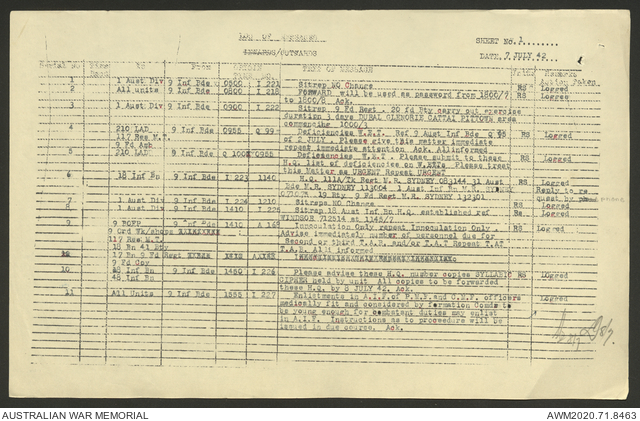 LOG OF MESSAGES
INWARDS/OUTWARDS
SHEET No. 1
DATE 7 JULY 42
Serial No Time To From ORIGIN TEXT OF MESSAGE Remarks Action Taken
1 1 Aust Div 9 Inf Bde 0800 I 221 Sitrep NO Change RS Logged
2 All units 9 Inf Bde 0800 I 218 FORWARD will be used as password from 1800/7 RS Logged
to 1800/8 Ack.
3 1 Aust Div 9 Inf Bde 0900 I 222 Sitrep 9 Fd Regt . 20 fd Bty carry out exercise RS Logged
duration 3 days DURAL GLENORIE CATTAI area
commencing 1000/3
4 210 LAD 9 Inf Bde 0955 Q 99 Deficiencies W.E.T. Ref 9 Aust Inf Bde Q 95 RS Logged
117 Res M.T. of 2 JULY . Please give this matter immediate
9 Fd Amb repeat immediate attention Ack. All informed
5 210 LAD 9 Inf Bde Q 100 0955 Deficiencies W.E.T . Please submit to these RS Logged
H.Q. list of deficiencies on W.ETs Please treat
this Matter as URGENT Repeat URGENT
6 18 Inf Bn 9 Inf Bde I 223 1140 H.Q. 111A/Tk Regt M.R. SYDNEY 083144 31 Aust Logged
Bde M.R. SYDNEY 113004 1 Aust Inf Bn M.R. SYDNEY Reply to re
19 Bty 9 Fd Regt M.R. SYDNEY 132301 quest by
7 1 Aust Div 9 Inf Bde I 224 1210 Sitreps NO Change RS Logged
8 1 Aust Div 9 Inf Bde 1410 I 225 Sitrep 18 Aust Inf Bn H.Q. established ref Logged
WINDSOR 712614 at 1145/7
9 9 Inf Bde 1410 A 168 Innoculation Only repeat Innoculation Only RS Logged
9 Ord Wk/shops Advise immediately number of personnel due for
117 Res M.T. Second or third T.A.B. and/or T.A.T Repeat T.AT
18 Bn 41 Bty T.A.B. All informed
17 Bn 9 Fd Regt
9 Fd Coy
10 18 Inf Bn 9 Inf Bde 1450 I 226 Please advise these H.Q. number copies SYLLABIC RS Logged
45 Inf Bn CIPHER held by unit. All copies to be forwarded
these H.Q. by 8 JULY 42. Ack.
11 All Units 9 Inf Bde 1555 I 227 Enlistments in A.I.F. of P.M.F. and C.M.F. officers Logged
medically fit and considered by formation Comds to
be young enough for combatant duties may enlist
in A.I.F. Instructions as to proceedure will be
issued in due source. Ack.
AUSTRALIAN WAR MEMORIAL
AWM2020.71.8463